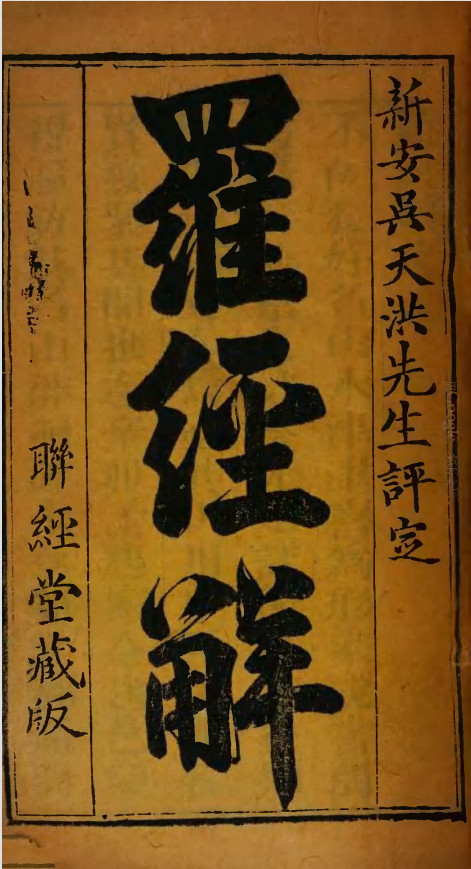 新安吳天洪先生評㝎
羅經觧
聯經堂藏版